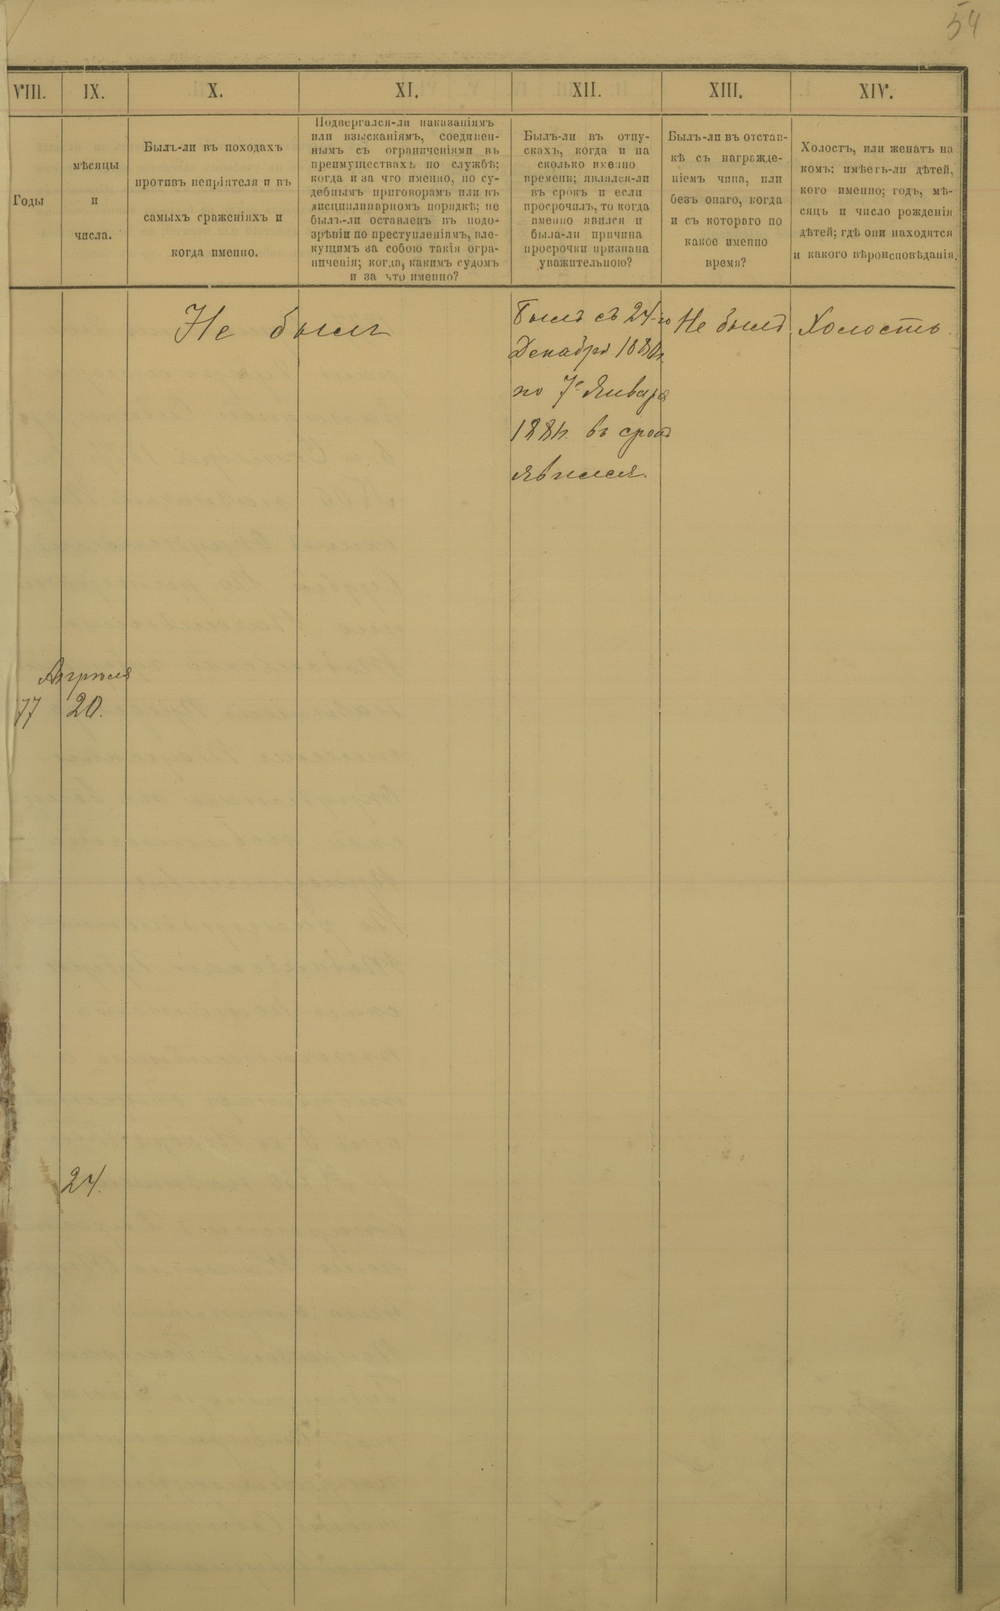 54
VIII. IX. X. XI. XII. XIII. XIV.
Годы
мѣсяцы
и
числа.
Былъ-ли въ походахъ
противъ непріятеля и въ
самыхъ сраженіяхъ и
когда именно.
Подвергался-ли наказаніямъ
или взысканіямъ, соединен-
нымъ съ ограниченіями въ
преимуществахъ по службѣ;
когда и за что именно, по су-
дебнымъ приговорамъ или въ
дисциплинарномъ порядкѣ; не
былъ-ли оставленъ въ подо-
зрѣніи по преступленіямъ, вле-
кущимъ за собою такія огра-
ниченія; когда, какимъ судомъ
и за что именно?
Былъ-ли въ отпу-
скахъ, когда и на
сколько именно
времени; явился-ли
въ срокъ и если
просрочилъ, то когда
именно явился и
была-ли причина
просрочки признана
уважительною?
Былъ-ли въ отстав-
кѣ съ награжде-
ніемъ чина, или
безъ онаго, когда
и съ котораго по
какое именно
время?
Холостъ, или женатъ на
комъ; имѣетъ-ли дѣтей,
кого именно; годъ, мѣ-
сяцъ и число рожденія
дѣтей; гдѣ они находятся
и какого вѣроисповѣданія.
Не былъ
Былъ съ 24-го
Декабря
по 7е Января
въ срокъ
явился.
Не былъ
Холостъ.
Апрѣля
77 20.
24.